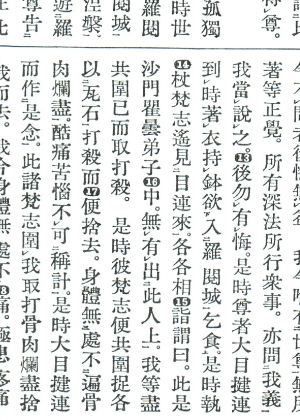 得尊。
孤獨
時世
羅閱
閱城
涅槃
遊羅
尊告
著等正覺。所有深法所行衆事。亦問我義
我當說之。⑬後勿有悔。是時尊者大目揵連
到時著衣持鉢欲入羅閱城乞食。是時執
⑭杖梵志遙見目連來。各各相⑮詣謂曰。此是
沙門瞿曇弟子⑯中。無有出此人上。我等盡
共圍已而取打殺。是時彼梵志便共圍捉各
以瓦石打殺而⑰便捨去。身體無處不遍骨
肉爛盡。酷痛苦惱不可稱計。是時大目揵連
而作是念。此諸梵志圍我取打骨肉爛盡捨
我而去。我今身體無處不⑱痛。極患疼痛